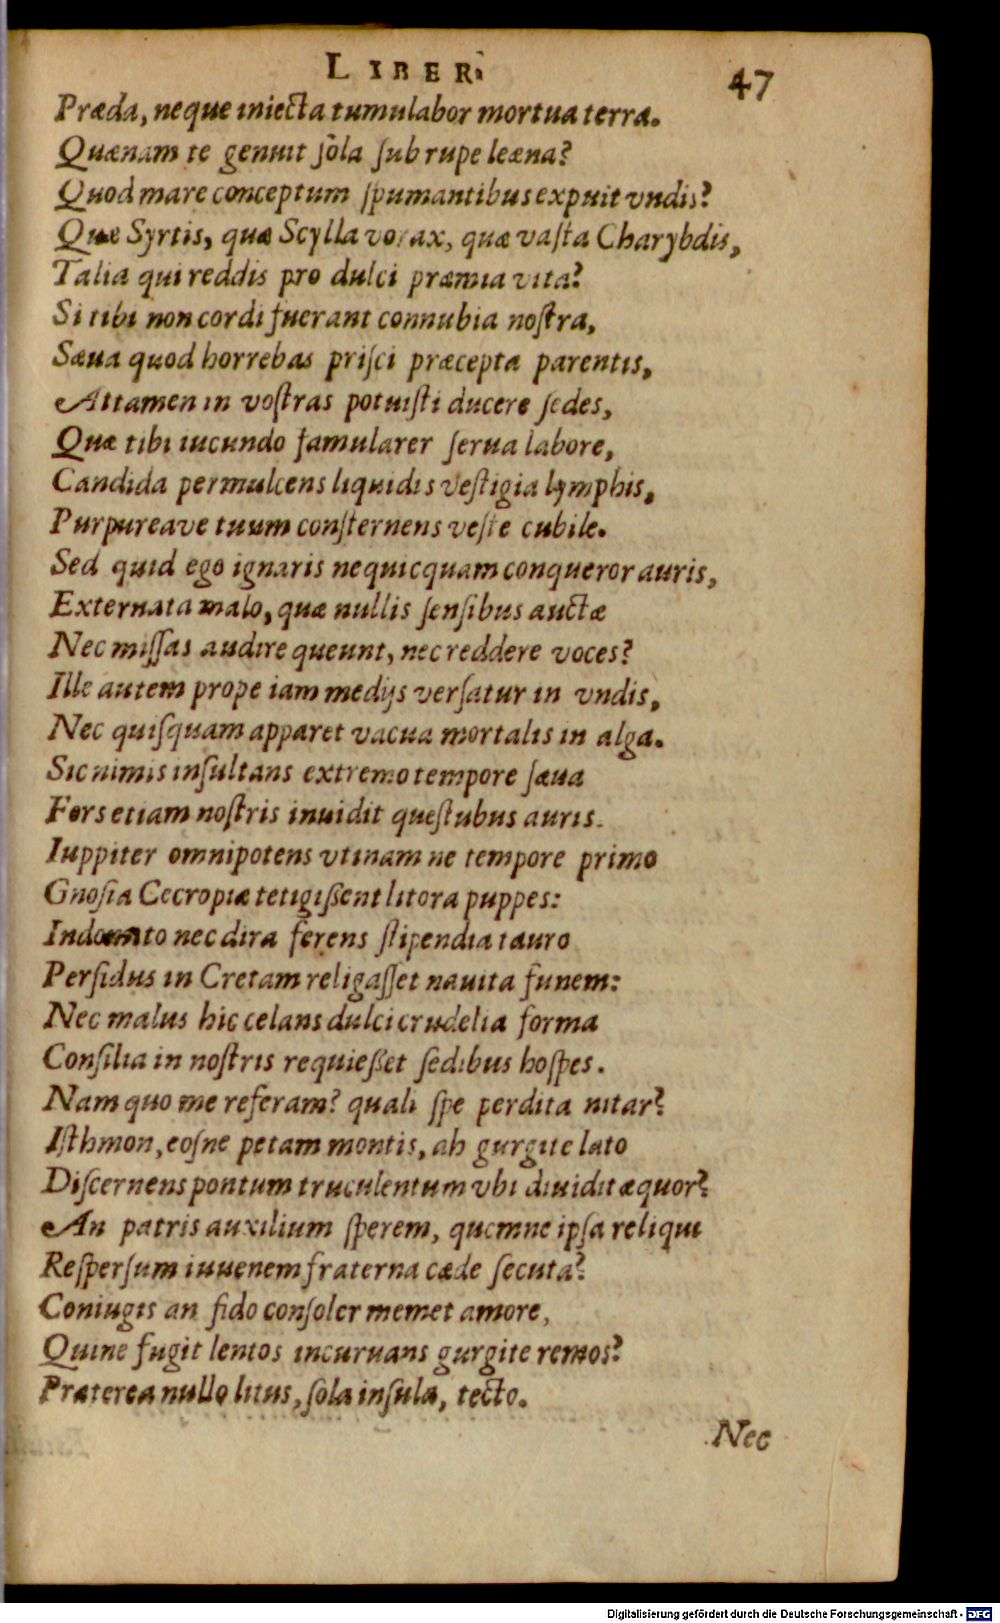 LIBER
47
Præda, neque iniecta tumulabor mortua terra.
Quænam te genuit ſola ſub rupe leæna?
Quod mare conceptum ſpumantibus expuit vndis?
Quæ Syrtis, quæ Scylla vorax, quæ vaſta Charybdis,
Talia qui reddis pro dulci præmia vita?
Si tibi non cordi fuerant connubia noſtra,
Sæua quod horrebas priſci præcepta parentis,
Attamen in voſtras potuiſti ducere ſedes,
Quæ tibi iucundo famularer ſerua labore,
Candida permulcens liquidis veſtigia lymphis,
Purpureave tuum conſternens veſte cubile.
Sed quid ego ignaris nequicquam conqueror auris,
Externata malo, quæ nullis ſenſibus auctæ
Nec miſſas audire queunt, nec reddere voces?
Ille autem prope iam medijs verſatur in vndis,
Nec quiſquam apparet vacua mortalis in alga.
Sic nimis inſultans extremo tempore ſæua
Fors etiam noſtris inuidit queſtubus auris.
Iuppiter omnipotens vtinam ne tempore primo
Gnoſia Cecropiæ tetigißent litora puppes:
Indomito nec dira ferens ſtipendia tauro
Perfidus in Cretam religaſſet nauita funem:
Nec malus hic celans dulci crudelia forma
Conſilia in noſtris requießet ſedibus hoſpes.
Nam quo me referam? quali ſpe perdita nitar?
Iſthmon, eoſne petam montis, ah gurgite lato
Diſcernens pontum truculentum vbi diuidit æquor?
An patris auxilium ſperem, quemne ipſa reliqui
Reſperſum iuuenem fraterna cæde ſecuta?
Coniugis an fido conſoler memet amore,
Quine fugit lentos incuruans gurgite remos?
Præterea nullo litus, ſola inſula, tecto.
Nec
Digitalisierung gefördert durch die Deutsche Forschungsgemeinschaft - DFG